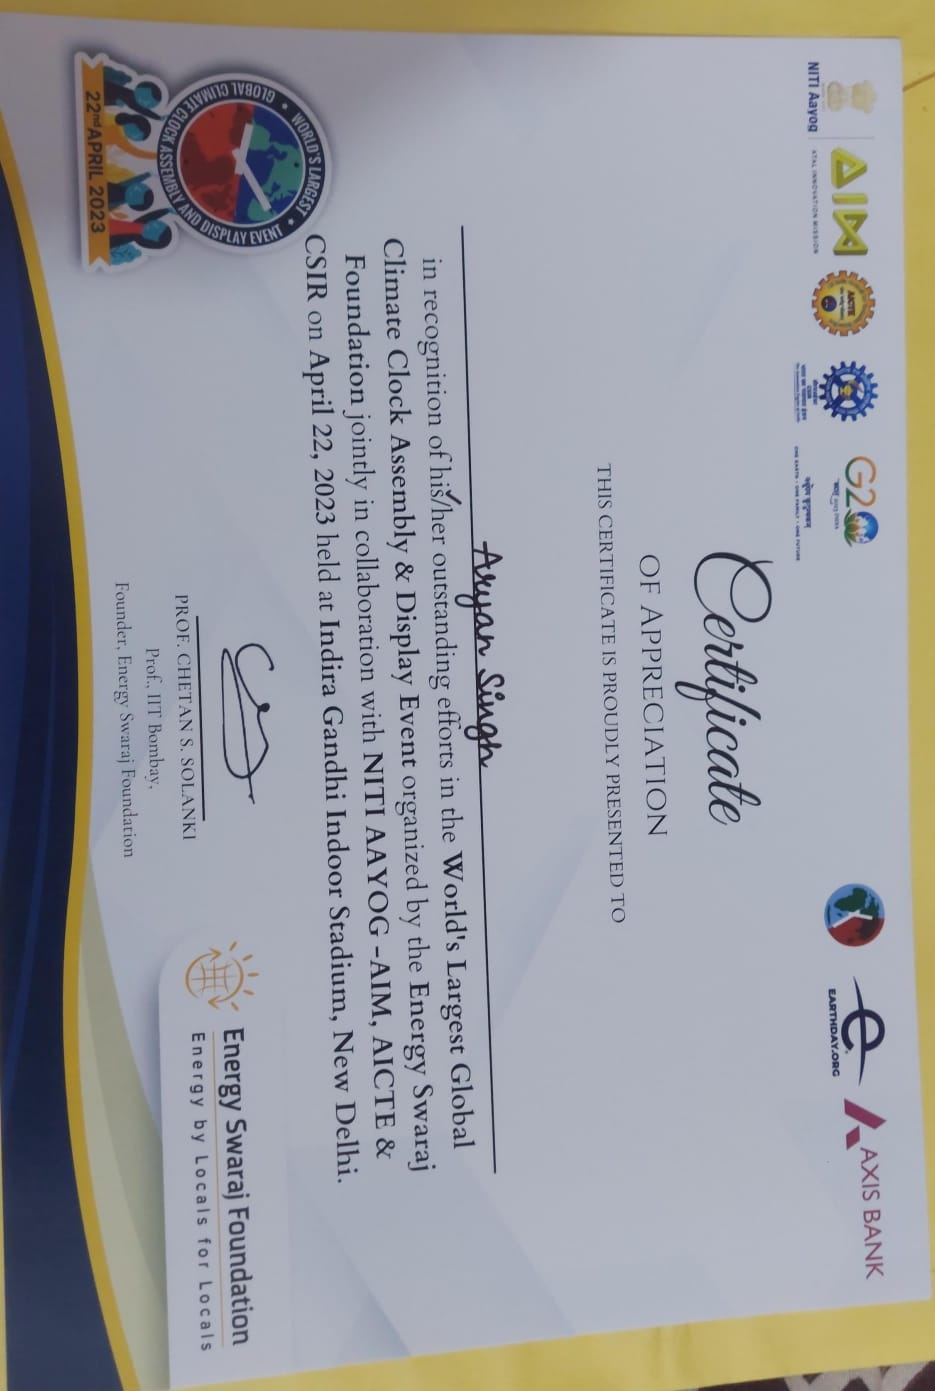 NITI Aayog
AIM
ATAL INNOVATION MISSION
AICTE
CSIR
G20
वसुधैव कुटुम्बकम्
ONE EARTH • ONE FAMILY • ONE FUTURE
EARTHDAY.ORG
AXIS BANK
Certificate
OF APPRECIATION
THIS CERTIFICATE IS PROUDLY PRESENTED TO
Aryan Singh
in recognition of his✓/her outstanding efforts in the World's Largest Global
Climate Clock Assembly & Display Event organized by the Energy Swaraj
Foundation jointly in collaboration with NITI AAYOG -AIM, AICTE &
CSIR on April 22, 2023 held at Indira Gandhi Indoor Stadium, New Delhi.
WORLD'S LARGEST
GLOBAL CLIMATE CLOCK ASSEMBLY AND DISPLAY EVENT
22nd APRIL 2023
PROF. CHETAN S. SOLANKI
Prof., IIT Bombay,
Founder, Energy Swaraj Foundation
Energy Swaraj Foundation
Energy by Locals for Locals